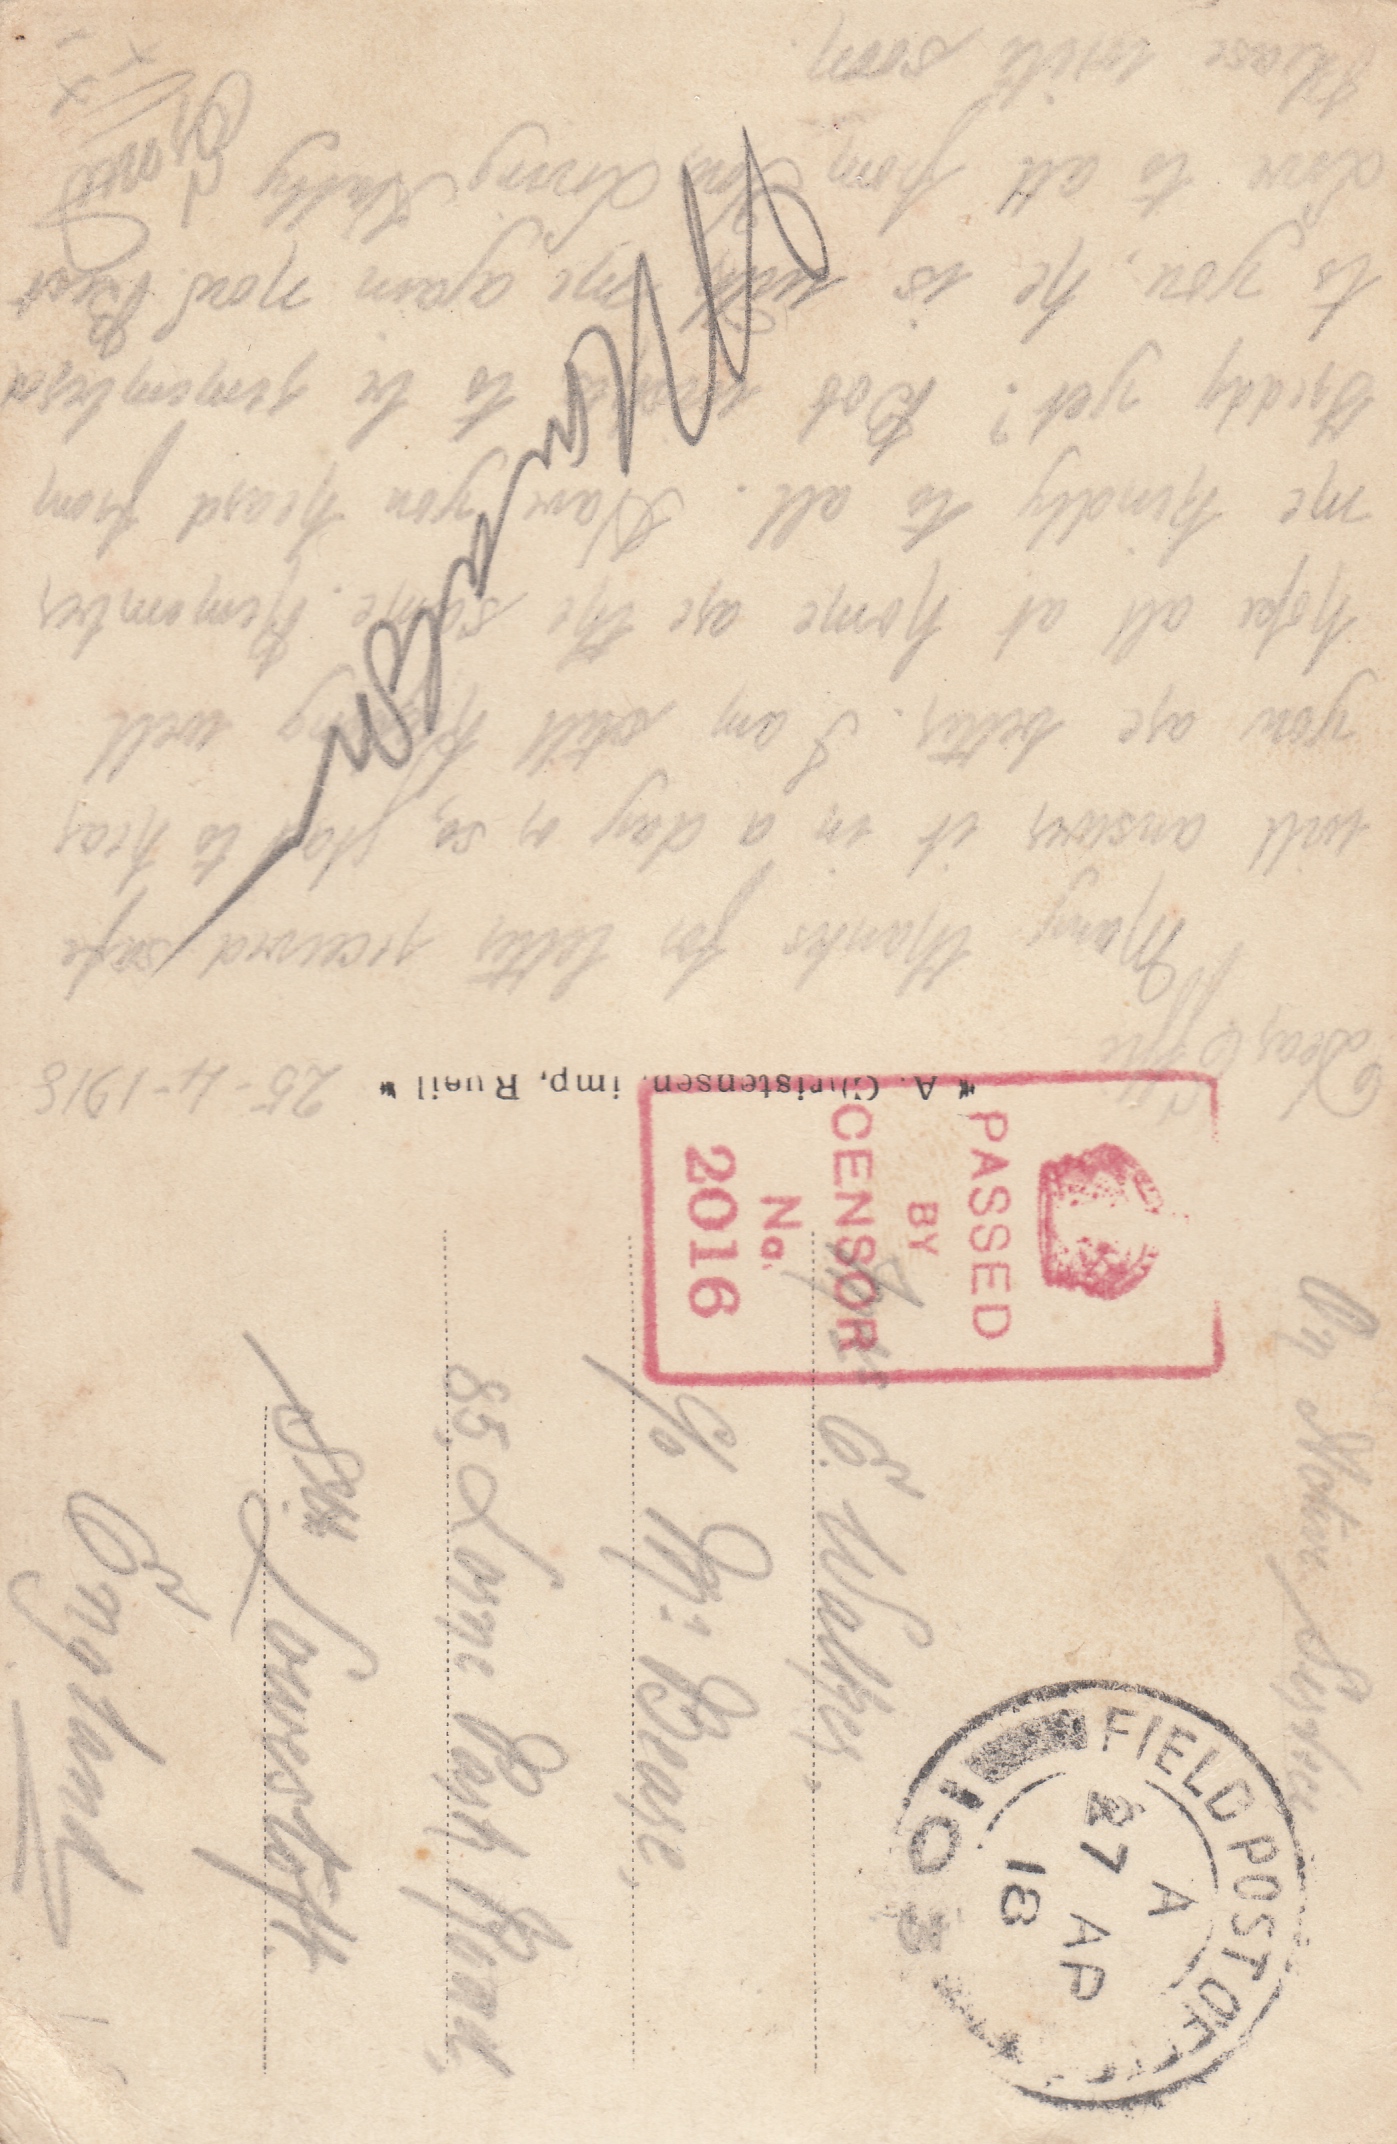 25-4-1918
Dear Effie
Many thanks for letter received safe
will answer it in a day or so, glad to hear
you are better. I am still keeping well
hope all at home are the same. Remember
me kindly to all. Have you heard from
Freddy yet? Bob wants to be remembered
to you, he is with me again now. Best
Love to all from Your Loving Hubby
Please write soon
* A. Christensen, imp, Rueil *
On Active Service
E. Walker,
c/o Mrs Bease,
85, Lorne Park Road,
Sth Lowestoft.
England
PASSED
BY
CENSOR
No.
2016
FIELD POST OFF
A
27 AP
18